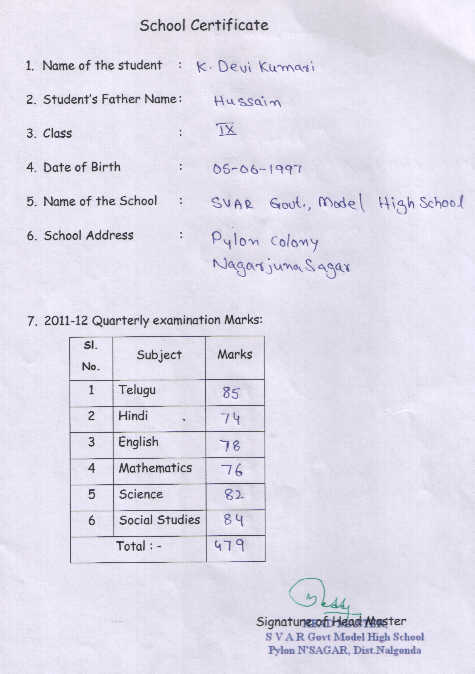 School Certificate
1. Name of the student : K. Devi Kumari
2. Student's Father Name: Hussain
3. Class : IX
4. Date of Birth : 05-06-1997
5. Name of the School : SVAR Govt., Model High School
6. School Address : Pylon Colony
Nagarjuna Sagar
7. 2011-12 Quarterly examination Marks:
Sl. No. Subject Marks
1 Telugu 85
2 Hindi 74
3 English 78
4 Mathematics 76
5 Science 82
6 Social Studies 84
Total : - 479
Signature of Head Master
HEAD MASTER
S V A R Govt Model High School
Pylon N'SAGAR, Dist.Nalgonda